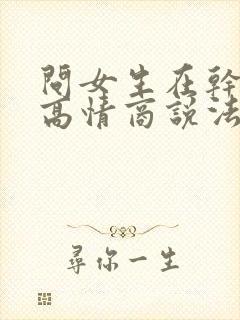 問女生在幹
高情商說法
尋你一生